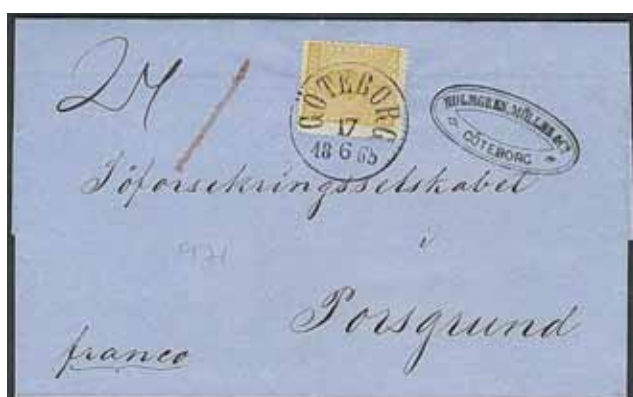 24
GÖTEBORG
17
18 6 65
HOLMGREN, MÖLLER & Cº
GÖTEBORG
Söforsekringsselskabet
i
Porsgrund
franco